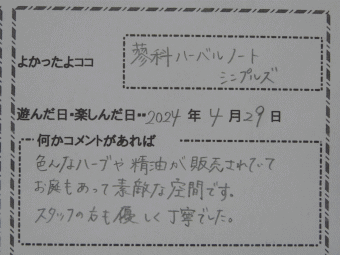 よかったよココ
蓼科ハーバルノート
シンプルズ
遊んだ日・楽しんだ日・・2024年4月29日
何かコメントがあれば
色んなハーブや精油が販売されていて
お庭もあって素敵な空間です。
スタッフの方も優しく丁寧でした。